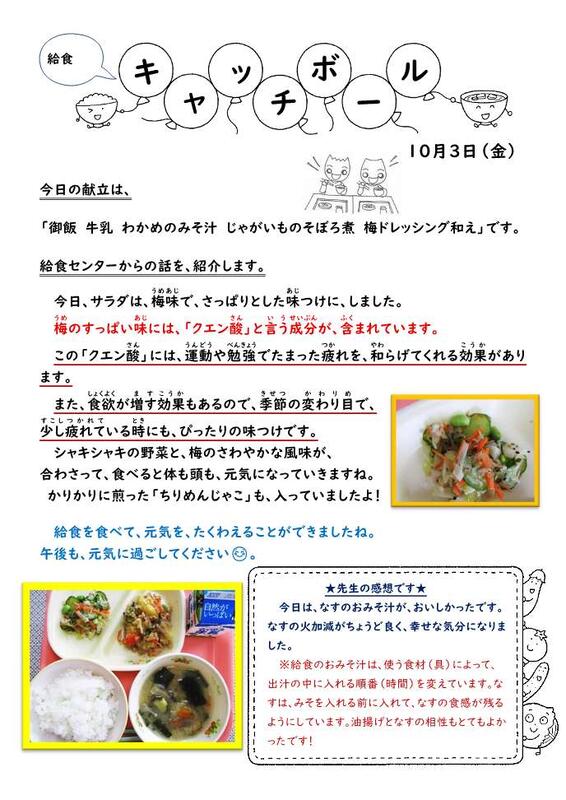 給食
キャッチボール
10月3日(金)
今日の献立は、
「御飯 牛乳 わかめのみそ汁 じゃがいものそぼろ煮 梅ドレッシング和え」です。
給食センターからの話を、紹介します。
今日、サラダは、梅味で、さっぱりとした味つけに、しました。
梅のすっぱい味には、「クエン酸」と言う成分が、含まれています。
この「クエン酸」には、運動や勉強でたまった疲れを、和らげてくれる効果があり
ます。
また、食欲が増す効果もあるので、季節の変わり目で、
少し疲れている時にも、ぴったりの味つけです。
シャキシャキの野菜と、梅のさわやかな風味が、
合わさって、食べると体も頭も、元気になっていきますね。
かりかりに煎った「ちりめんじゃこ」も、入っていましたよ!
給食を食べて、元気を、たくわえることができましたね。
午後も、元気に過ごしてください😊。
自然が
いっぱい
★先生の感想です★
今日は、なすのおみそ汁が、おいしかったです。
なすの火加減がちょうど良く、幸せな気分になりま
した。
※給食のおみそ汁は、使う食材(具)によって、
出汁の中に入れる順番(時間)を変えています。な
すは、みそを入れる前に入れて、なすの食感が残る
ようにしています。油揚げとなすの相性もとてもよか
ったです!